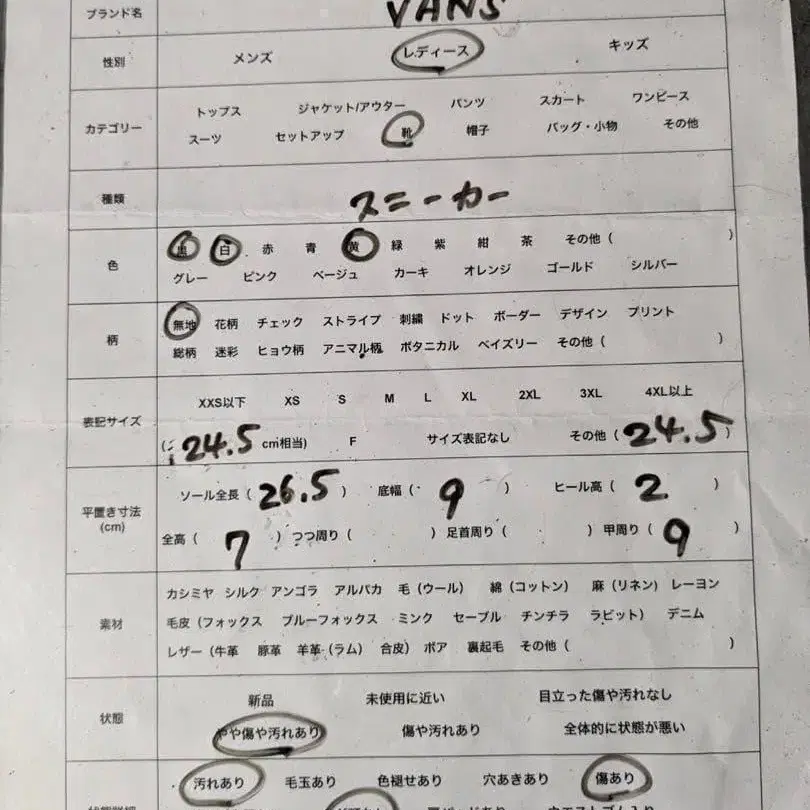 ブランド名 VANS
性別 メンズ レディース キッズ
トップス ジャケット/アウター パンツ スカート ワンピース
カテゴリー
スーツ セットアップ 靴 帽子 バッグ・小物 その他
種類 スニーカー
黒 白 赤 青 黄 緑 紫 紺 茶 その他 ( )
色
グレー ピンク ベージュ カーキ オレンジ ゴールド シルバー
無地 花柄 チェック ストライプ 刺繍 ドット ボーダー デザイン プリント
柄
総柄 迷彩 ヒョウ柄 アニマル柄 ボタニカル ペイズリー その他 ( )
XXS以下 XS S M L XL 2XL 3XL 4XL以上
表記サイズ
( 24.5 cm相当) F サイズ表記なし その他 ( 24.5 )
ソール全長 ( 26.5 ) 底幅 ( 9 ) ヒール高 ( 2 )
平置き寸法
(cm)
全高 ( 7 ) つつ周り ( ) 足首周り ( ) 甲周り ( 9 )
カシミヤ シルク アンゴラ アルパカ 毛 (ウール) 綿 (コットン) 麻 (リネン) レーヨン
素材 毛皮 (フォックス ブルーフォックス ミンク セーブル チンチラ ラビット) デニム
レザー (牛革 豚革 羊革 (ラム) 合皮) ボア 裏起毛 その他 ( )
新品 未使用に近い 目立った傷や汚れなし
状態
やや傷や汚れあり 傷や汚れあり 全体的に状態が悪い
汚れあり 毛玉あり 色褪せあり 穴あきあり 傷あり